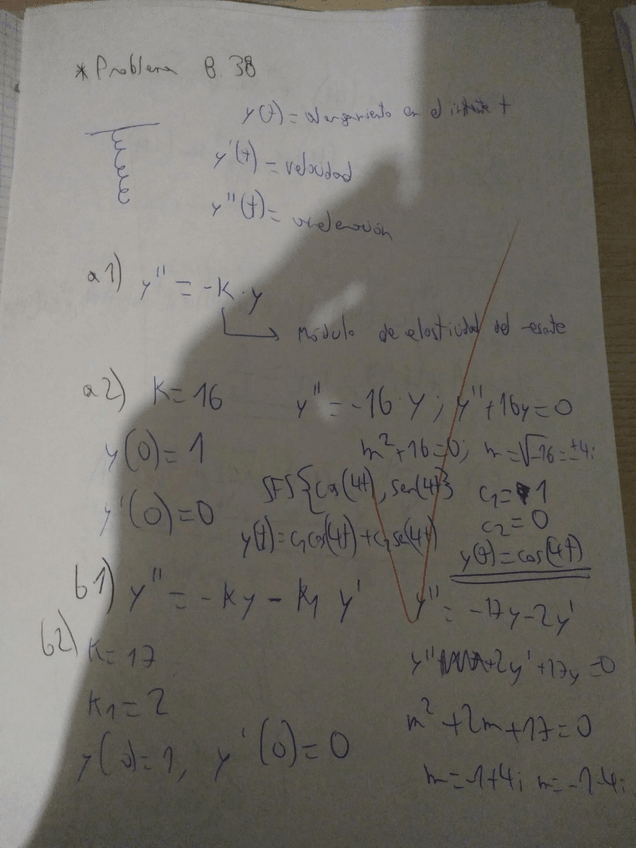 * Problema 8.38
y(t) = alargamiento en el instante t
y'(t) = velocidad
y''(t) = aceleración
a1) y'' = -K·y
Módulo de elasticidad del
a2) K = 16 y'' = -16 y ; y'' + 16y = 0
y(0) = 1 m² + 16 = 0; m = √-16 = ±4i
y'(0) = 0 SFS {cos(4t), sen(4t)} c₁ = 1
c₂ = 0
y(t) = c₁cos(4t) + c₂sen(4t)
y(t) = cos(4t)
b1) y'' = -Ky - K₁ y' y'' = -17y - 2y'
b2) K = 17 y'' + 2y' + 17y = 0
K₁ = 2 m² + 2m + 17 = 0
y(0) = 1, y'(0) = 0 m = -1+4i m = -1-4i